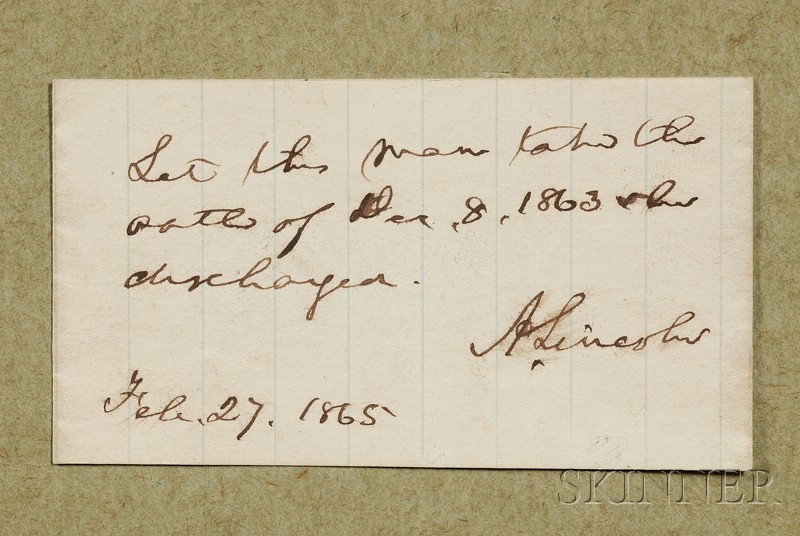 Let this man take the
oath of Dec. 8, 1863 & be
discharged.
A. Lincoln
Feb. 27, 1865
SKINNER